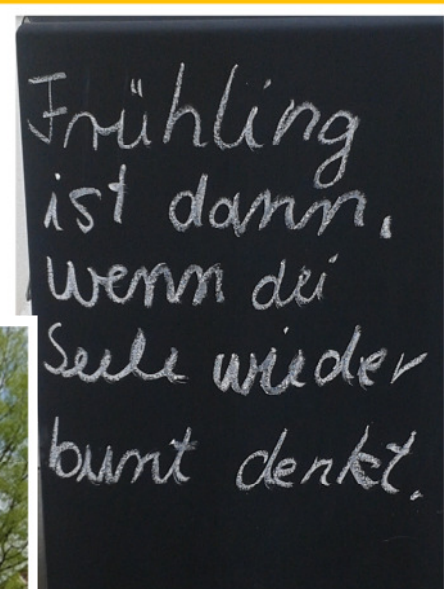 Frühling
ist dann,
wenn dei
Seele wieder
bunt denkt.